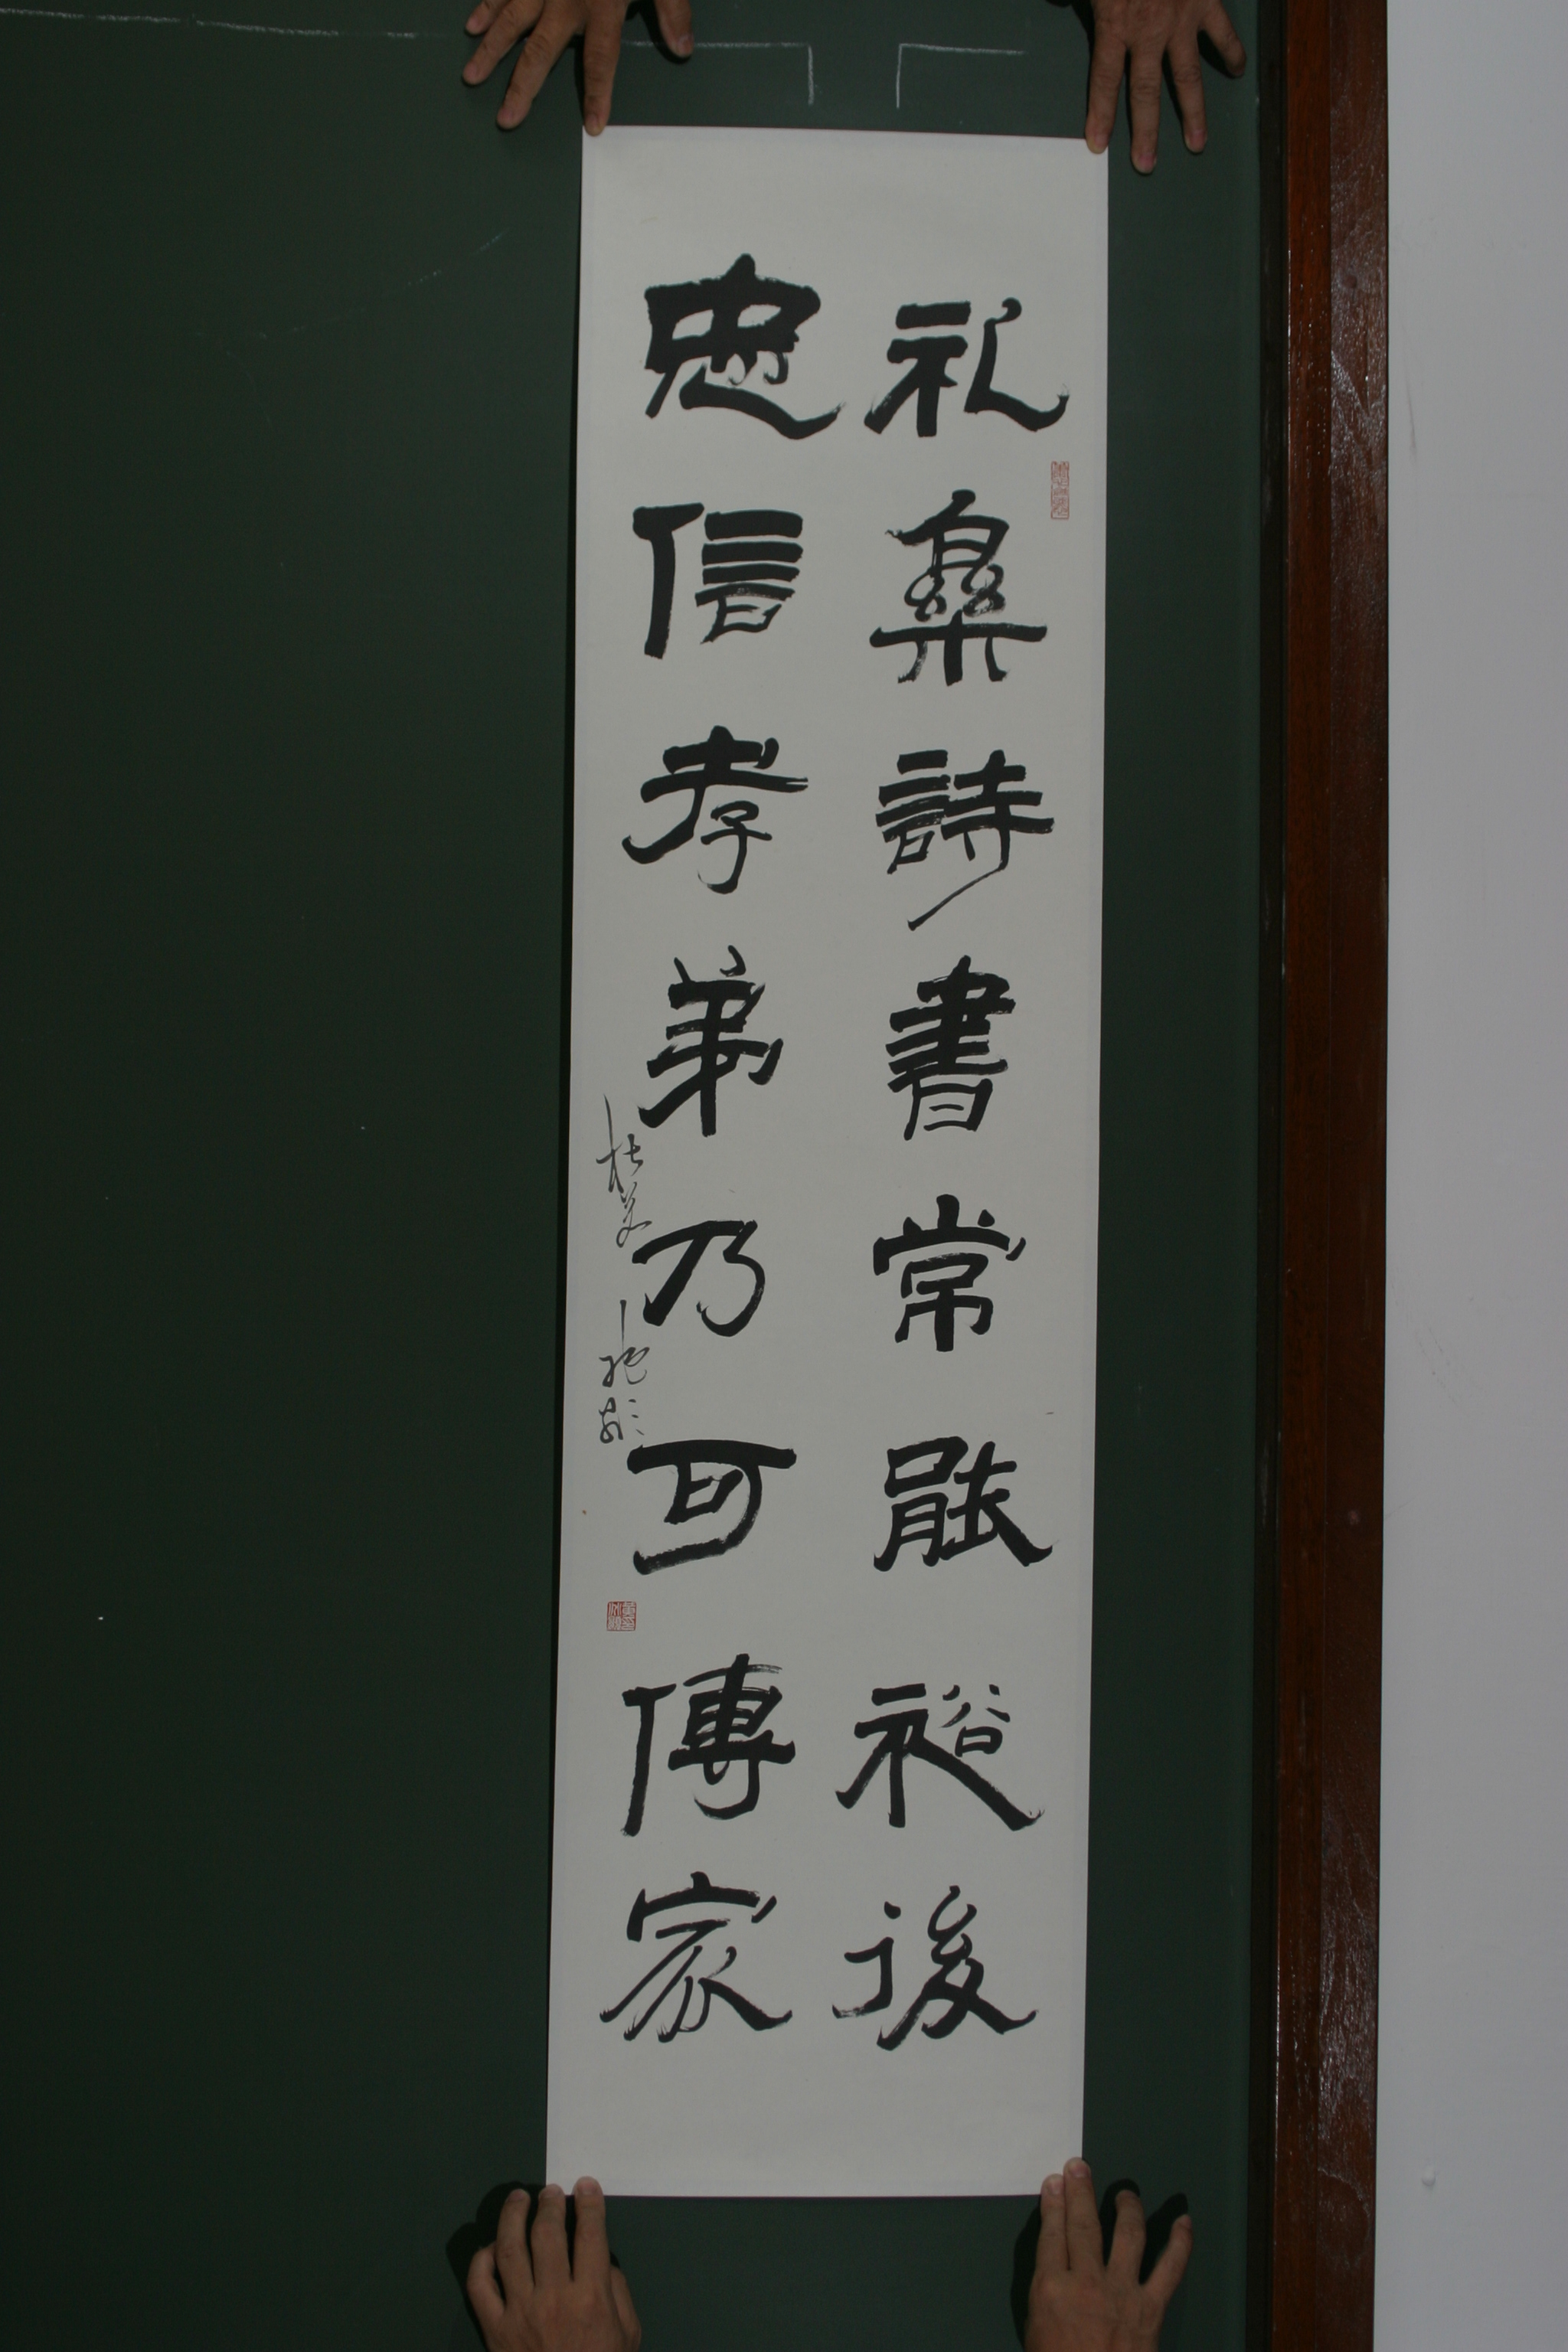 礼樂詩書常能裕後
忠信孝弟乃可傳家